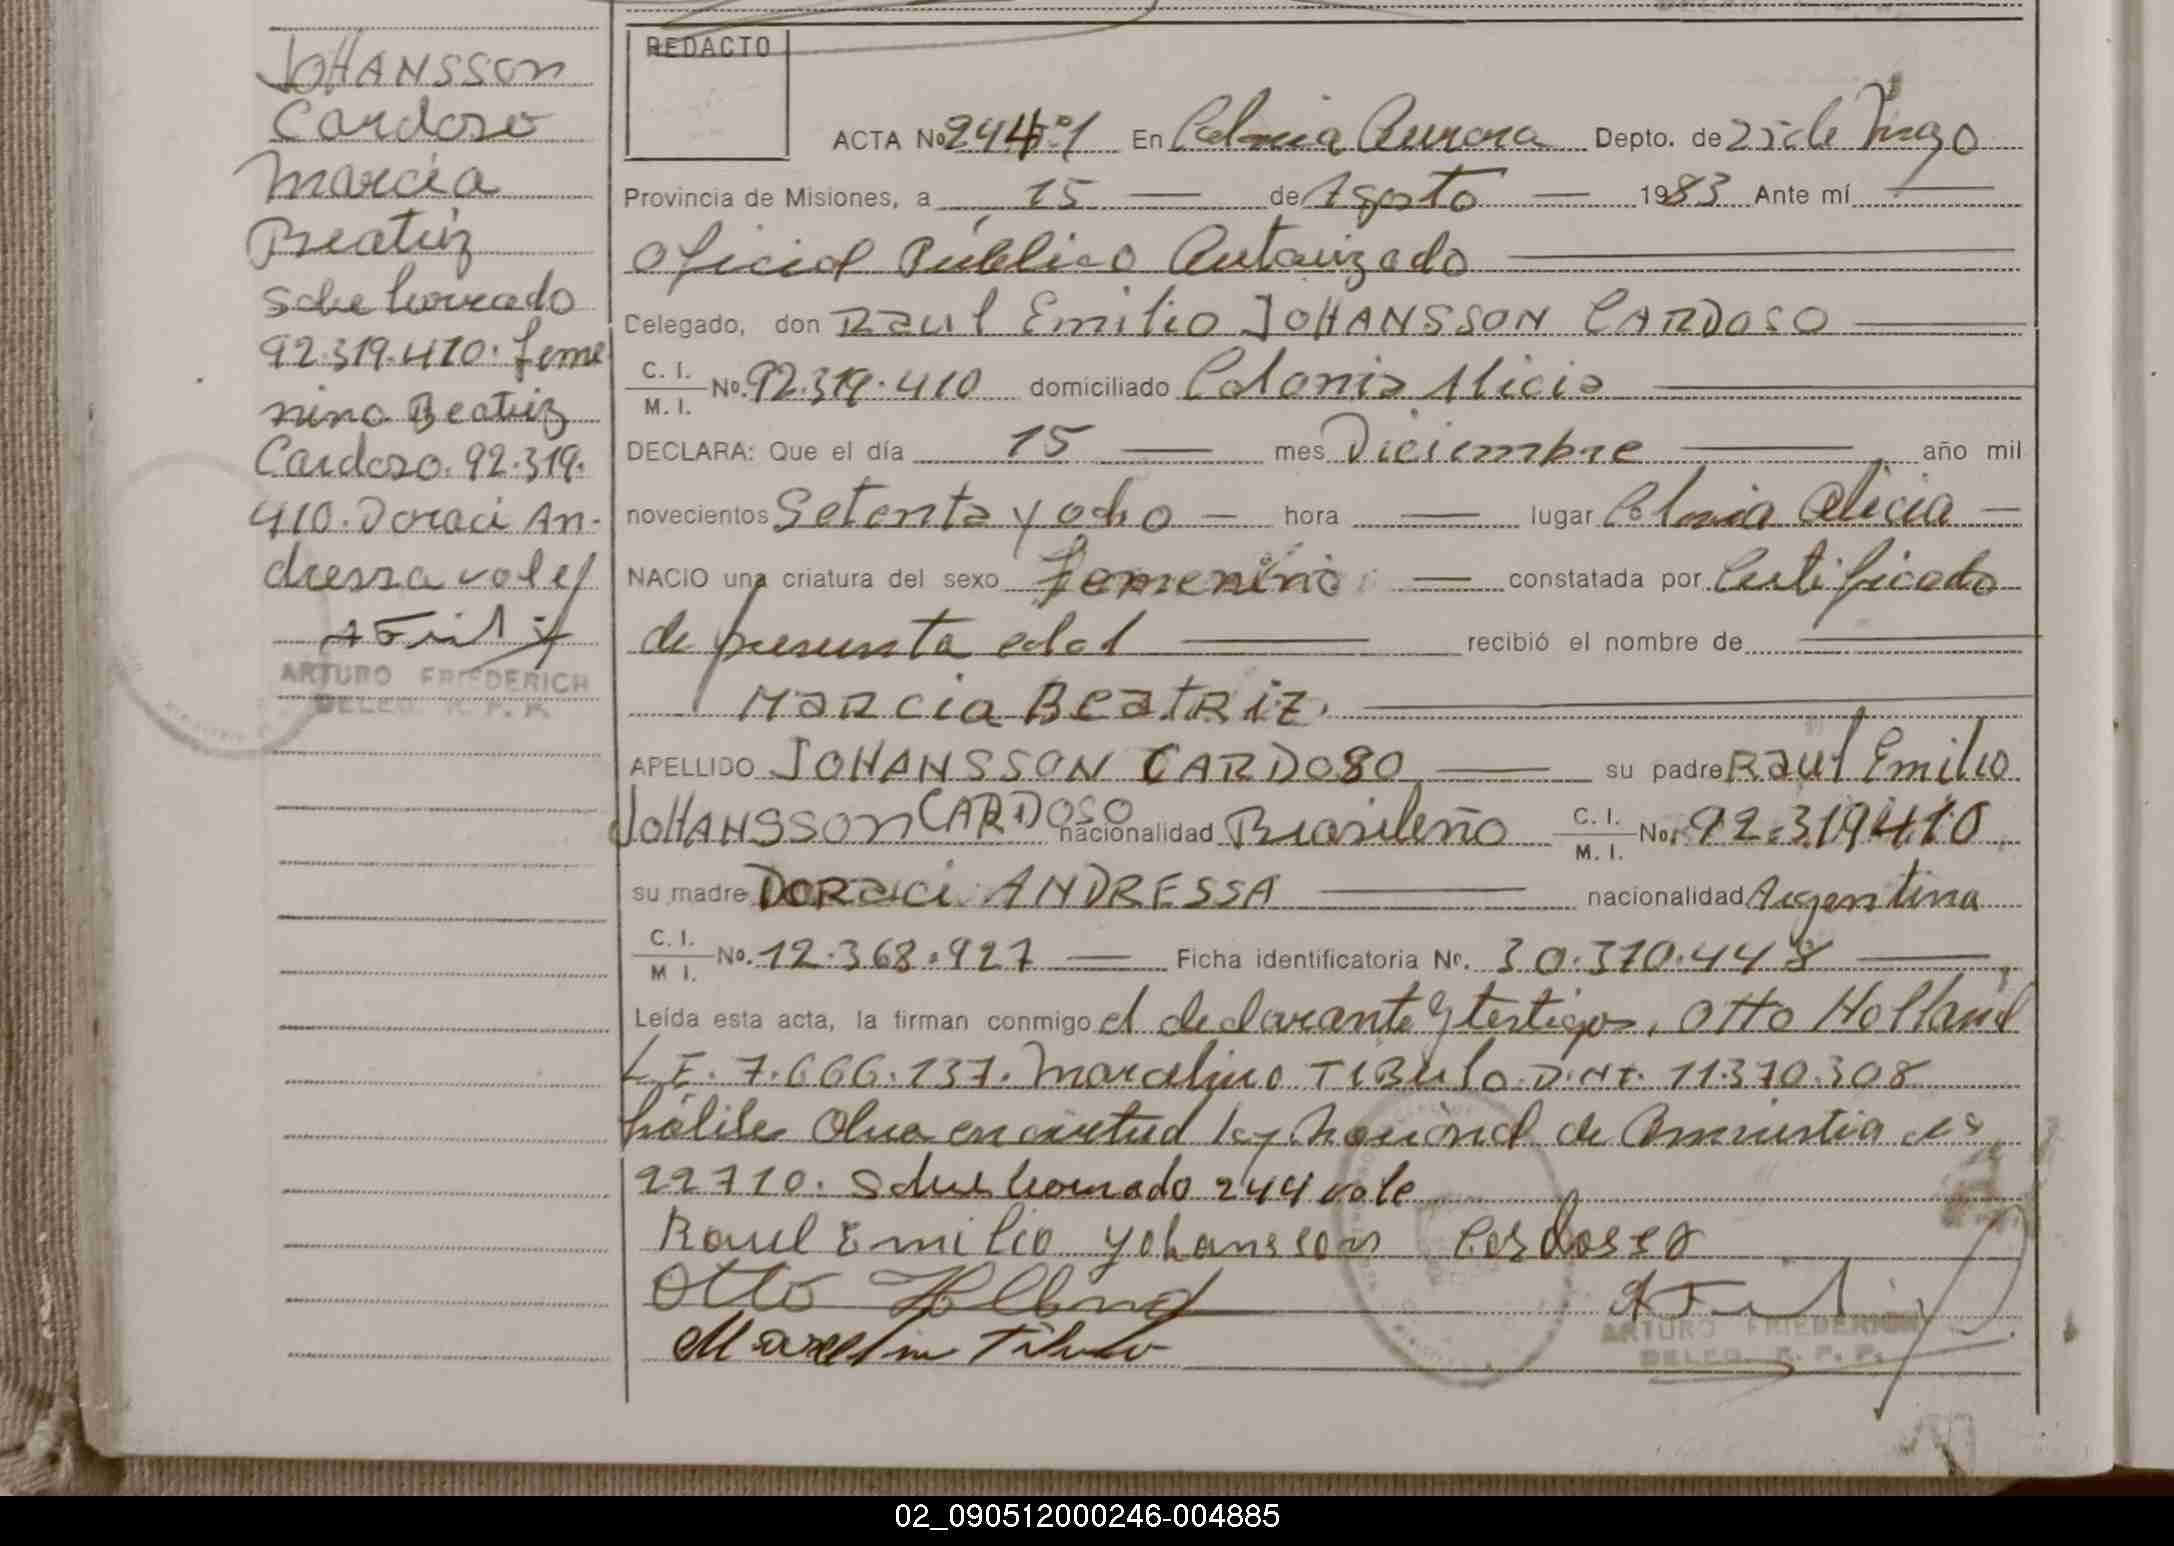 JOHANSSON
Cardoso
Marcia
Beatriz
Sobre borrado
92.319.410. feme
nino Beatriz
Cardoso. 92.319.
410. Doraci An-
dressa vale
ARTURO FRIEDERICH
DELEG. R. P. P.
REDACTO
ACTA No 244 En Colonia Aurora Depto. de 25 de Mayo
Provincia de Misiones, a 15 — de Agosto — 1983 Ante mí
Oficial Público Autorizado
Celegado, don Raul Emilio JOHANSSON CARDOSO
C. I. / M. I. No. 92.319.410 domiciliado Colonia Alicia
DECLARA: Que el día 15 — mes Diciembre — año mil
novecientos Setenta y ocho — hora — lugar Colonia Alicia —
NACIO una criatura del sexo Femenino — constatada por Certificado
de presunta edad — recibió el nombre de
MARCIA BEATRIZ.
APELLIDO JOHANSSON CARDOSO — su padre Raul Emilio
JOHANSSON CARDOSO nacionalidad Brasileño C. I. / M. I. No. 92.319410
su madre DORACI ANDRESSA — nacionalidad Argentina
C. I. / M I. No. 12.368.927 — Ficha identificatoria Nº. 30.370.448 —
Leída esta acta, la firman conmigo el declarante y testigos, Otto Holland
L.E. 7.666.137. Marcelino TIBULO. D.N.I. 11.370.308
hábiles en virtud ley nacional de Amnistia
22710. Sobre borrado 244 vale
Raul Emilio Yohansson Cardosso
Otto Holland
ARTURO FRIEDERICH
Marcelino Tibulo
DELEG. R. P. P.
02_090512000246-004885